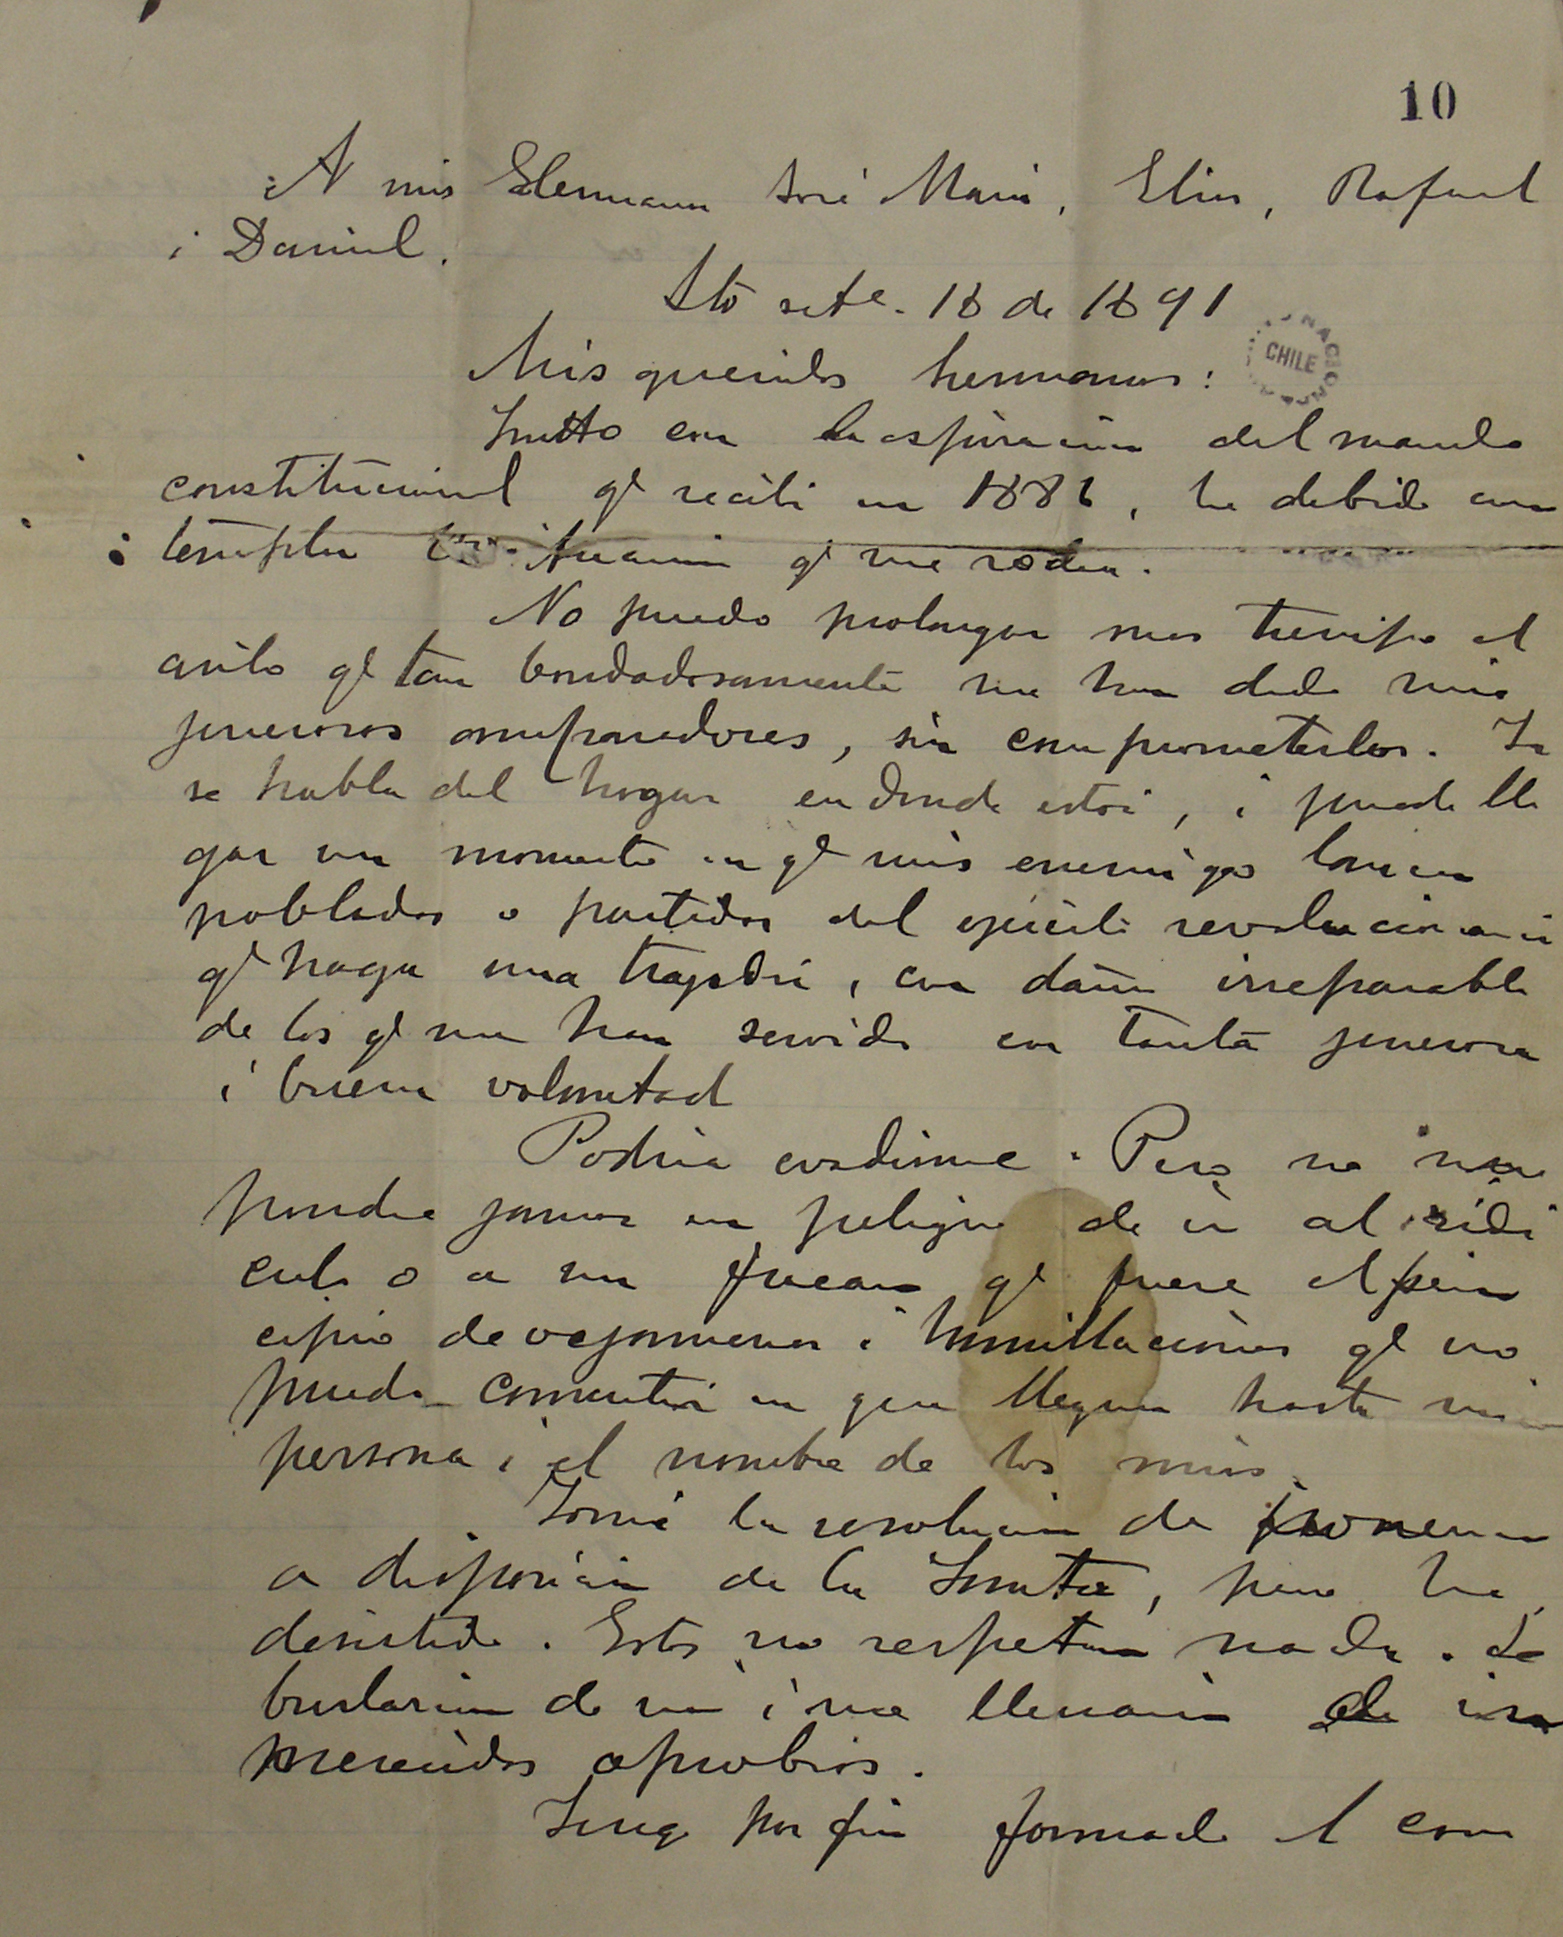 10
A mis Hermanos José Maria, Elias, Rafael
i Daniel.
Sto sete. 18 de 1891
CHILE
Mis queridos hermanos:
Junto con la espiracion del mando
constitucional qe recibi en 1886, he debido con
templar la situacion qe me rodea.
No puedo prolongar mas tiempo el
asilo qe tan bondadosamente me han dado mis
jenerosos amparadores, sin comprometerlos. Ya
se habla del hogar en donde estoi, i puede lle
gar un momento en qe mis enemigos lancen
pobladas o partidas del ejército revolucionario
qe haga una trajedia, con daño irreparable
de los qe me han servido con tanta jenerosa
i buena voluntad
Podria evadirme. Pero no me
pondré jamas en peligro de ir al ridi
culo o a un fracaso qe fuere el prin
cipio de vejamenes i humillaciones qe no
puedo consentir en que lleguen hasta mi
persona i el nombre de los mios.
Tomé la resolucion de ponerme
a disposicion de la Junta, pero he
desistido. Estos no respetan nada. Se
burlarian de mi i me llenarian de in
merecidos oprobios.
Tengo por fin formado el con